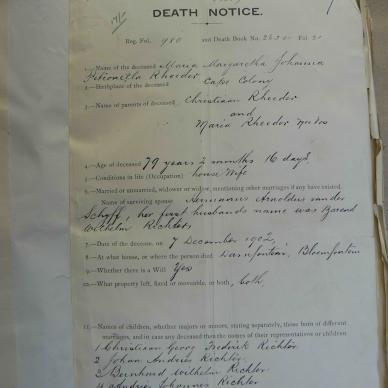 17/-
DEATH NOTICE.
Reg. Fol. 980 and Death Book No. Fol.
1.—Name of the deceased Maria Margaretha Johanna
Petronella Rheeder
2.—Birthplace of the deceased Cape Colony
3.—Name of parents of deceased Christiaan Rheeder
and
Maria Rheeder
4.—Age of deceased 79 years 2 months 16 days
5.—Conditions in life (Occupation) house Wife
6.—Married or unmarried, widower or widow, mentioning other marriages if any have existed.
Name of surviving spouse Hermanus Arnoldus van der
Schyff, her first husbands name was Barend
Wilhelm Richter.
7.—Date of the decease, on 7 December 1902,
8.—At what house, or where the person died Bloemfontein
9.—Whether there is a Will Yes
10.—What property left, fixed or movable, or both, both,
11.—Names of children, whether majors or minors, stating separately, those born of different
marriages, and in case any deceased then the names of their representatives or children
1 Christiaan Georg Fredrick Richter
2 Johan Andries Richter
3 Bernhard Wilhelm Richter
4 Andries Johannes Richter